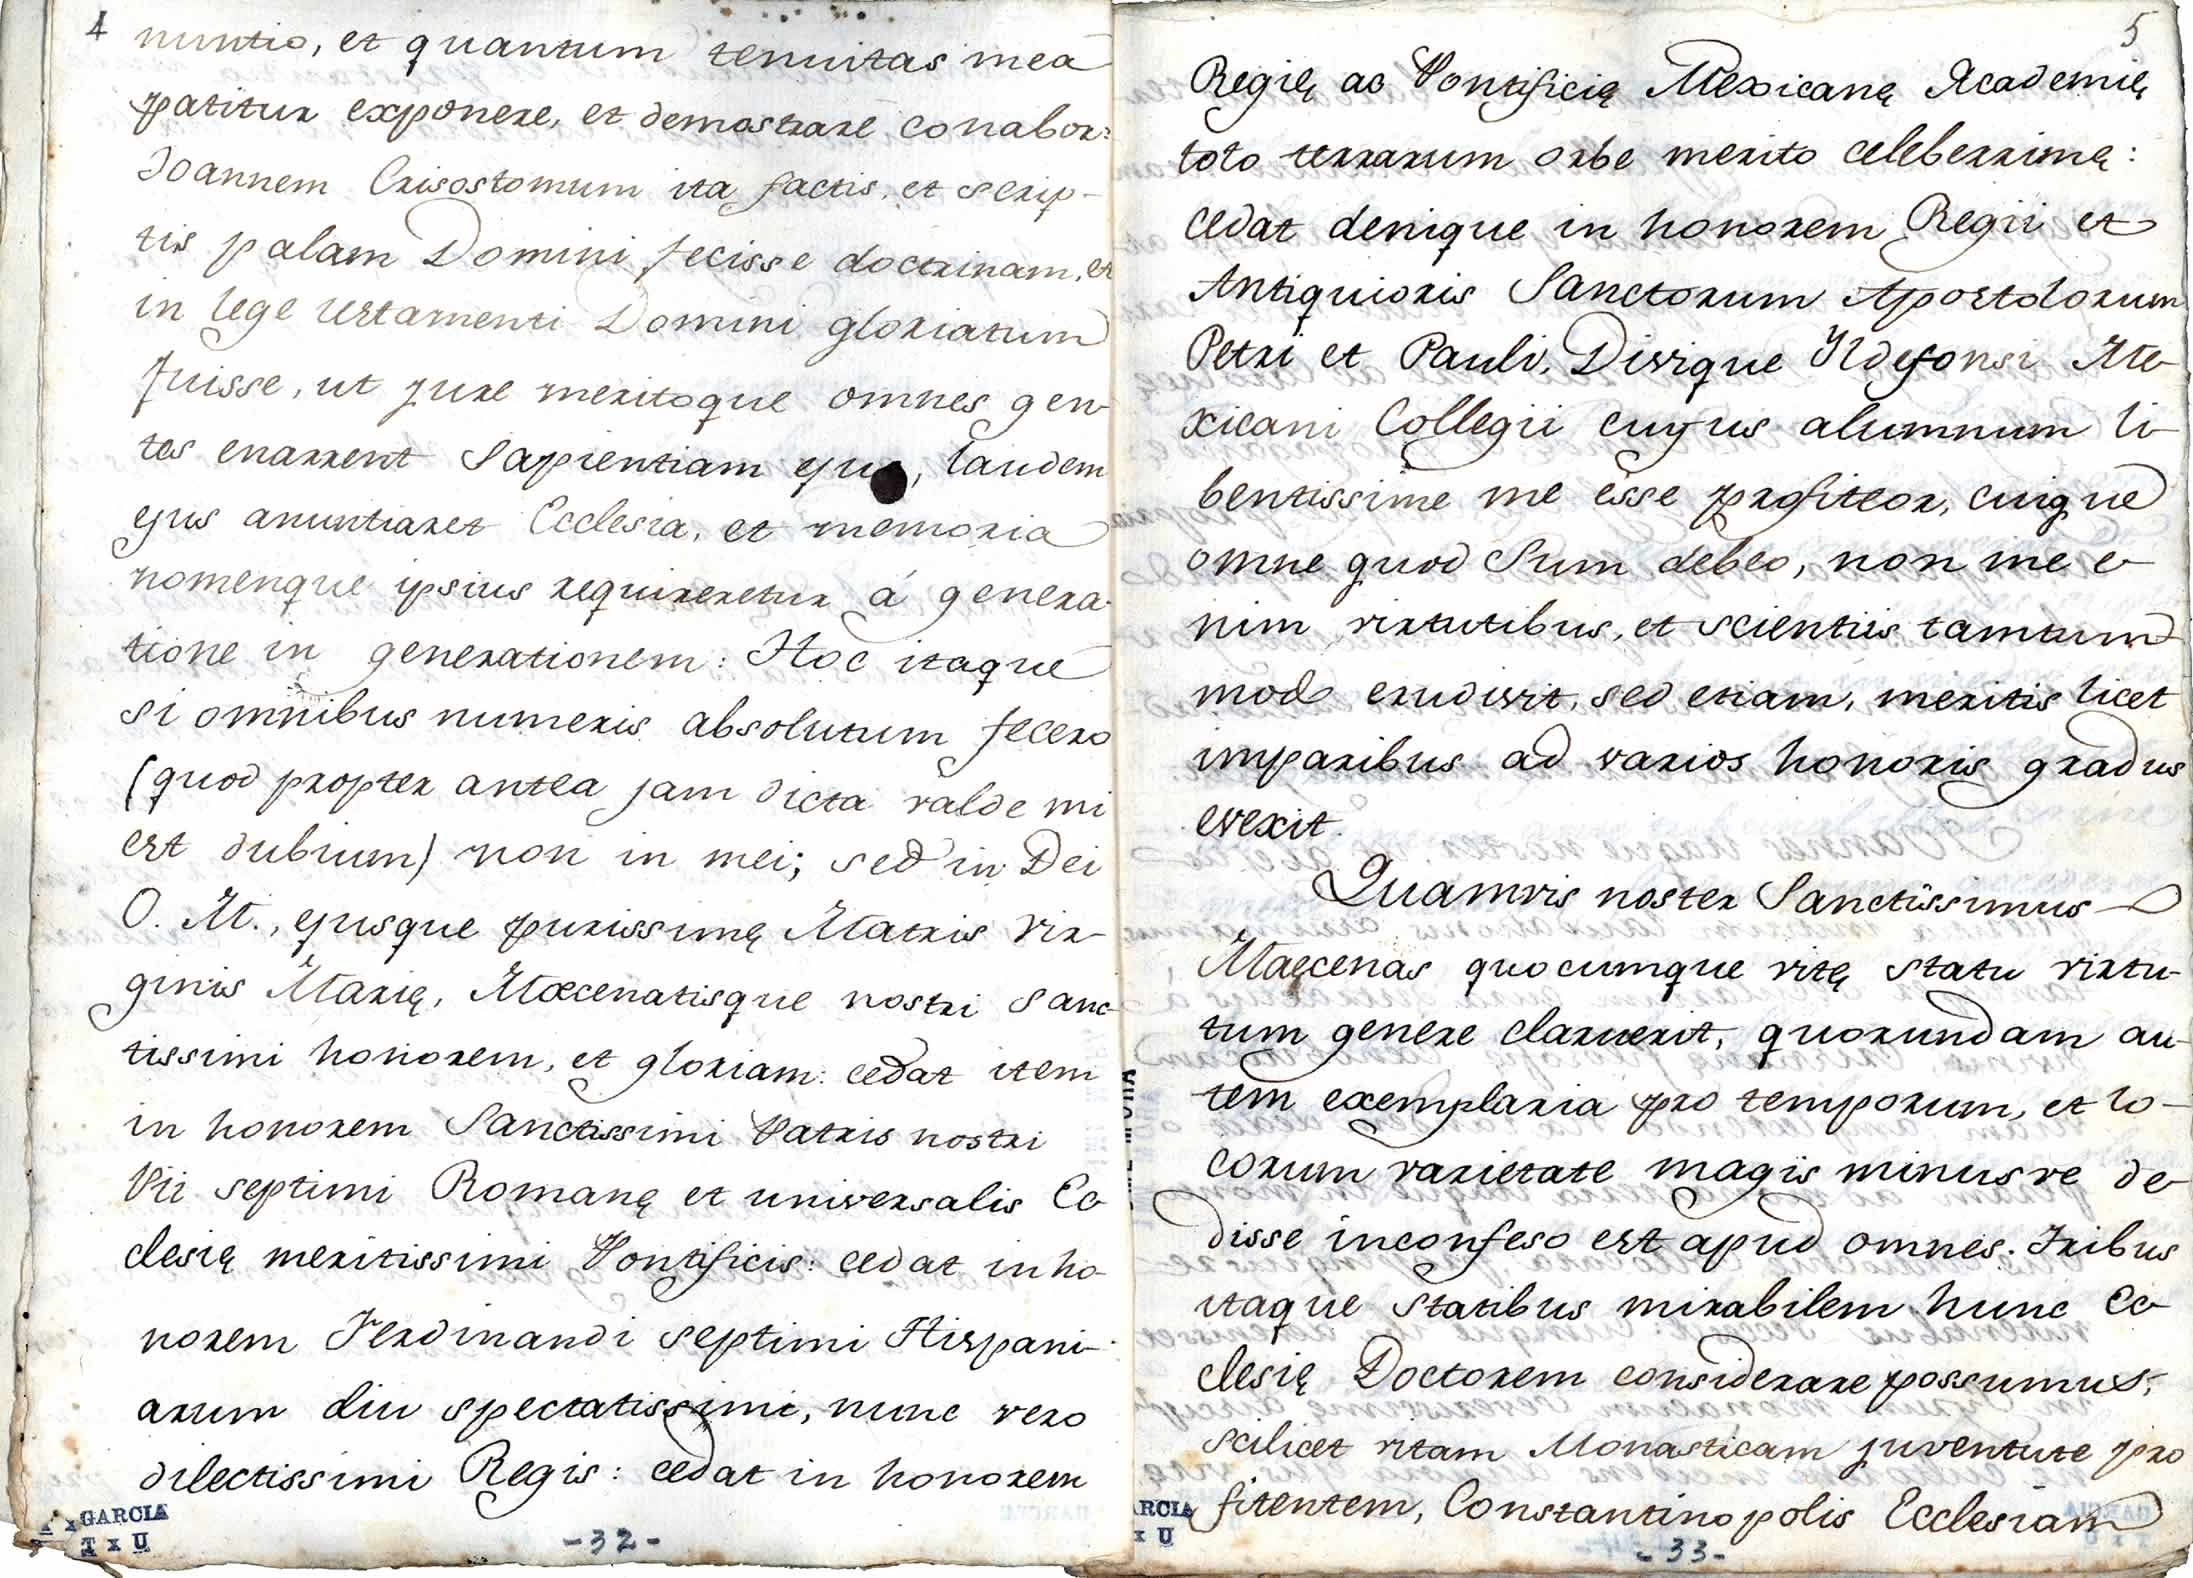 4
nuntio, et quantum tenuitas mea
patitur exponere, et demostrare conabor:
Joannem Crisostomum ita factis, et scrip-
tis palam Domini fecisse doctrinam, et
in lege testamenti Domini gloriatum
fuisse, ut jure meritoque omnes gen-
tes enarrent Sapientiam ejus, laudem
ejus anuntiaret Ecclesia, et memoria
nomenque ipsius requireretur á genera-
tione in generationem: Hoc itaque
si omnibus numeris absolutum fecero
(quod propter antea jam dicta valde mi
est dubium) non in mei; sed in Dei
O. M., ejusque purissimę Matris Vir-
ginis Marię, Mœcenatisque nostri Sanc-
tissimi honorem, et gloriam: cedat item
in honorem Sanctissimi Patris nostri
Pii septimi Romanę et universalis Ec-
clesię meritissimi Pontificis: cedat in ho-
norem Ferdinandi septimi Hispani-
arum diu spectatissimi, nunc vero
dilectissimi Regis: cedat in honorem
GARCIA
T x U
-32-
5
Regię ac Pontificię Mexicanę Academię
toto terrarum orbe merito celeberrimę:
cedat denique in honorem Regii et
Antiquioris Sanctorum Apostolorum
Petri et Pauli, Divique Yldefonsi Me-
xicani Collegii cujus alumnum li-
bentissime me esse profiteor, cuique
omne quod Sum debeo, non me e-
nim virtutibus, et scientiis tamtum-
modo erudivit, sed etiam, meritis licet
imparibus ad varios honoris gradus
evexit.
Quamvis noster Sanctissimus
Maęcenas quocumque vitę statu virtu-
tum genere claruerit, quorundam au-
tem exemplaria pro temporum, et lo-
corum varietate magis minusve de-
disse inconfeso est apud omnes. Tribus
itaque Statibus mirabilem hunc Ec-
clesię Doctorem considerare possumus,
scilicet vitam Monasticam juventute pro
fitentem, Constantinopolis Ecclesiam
ARCIA
x U
-33-